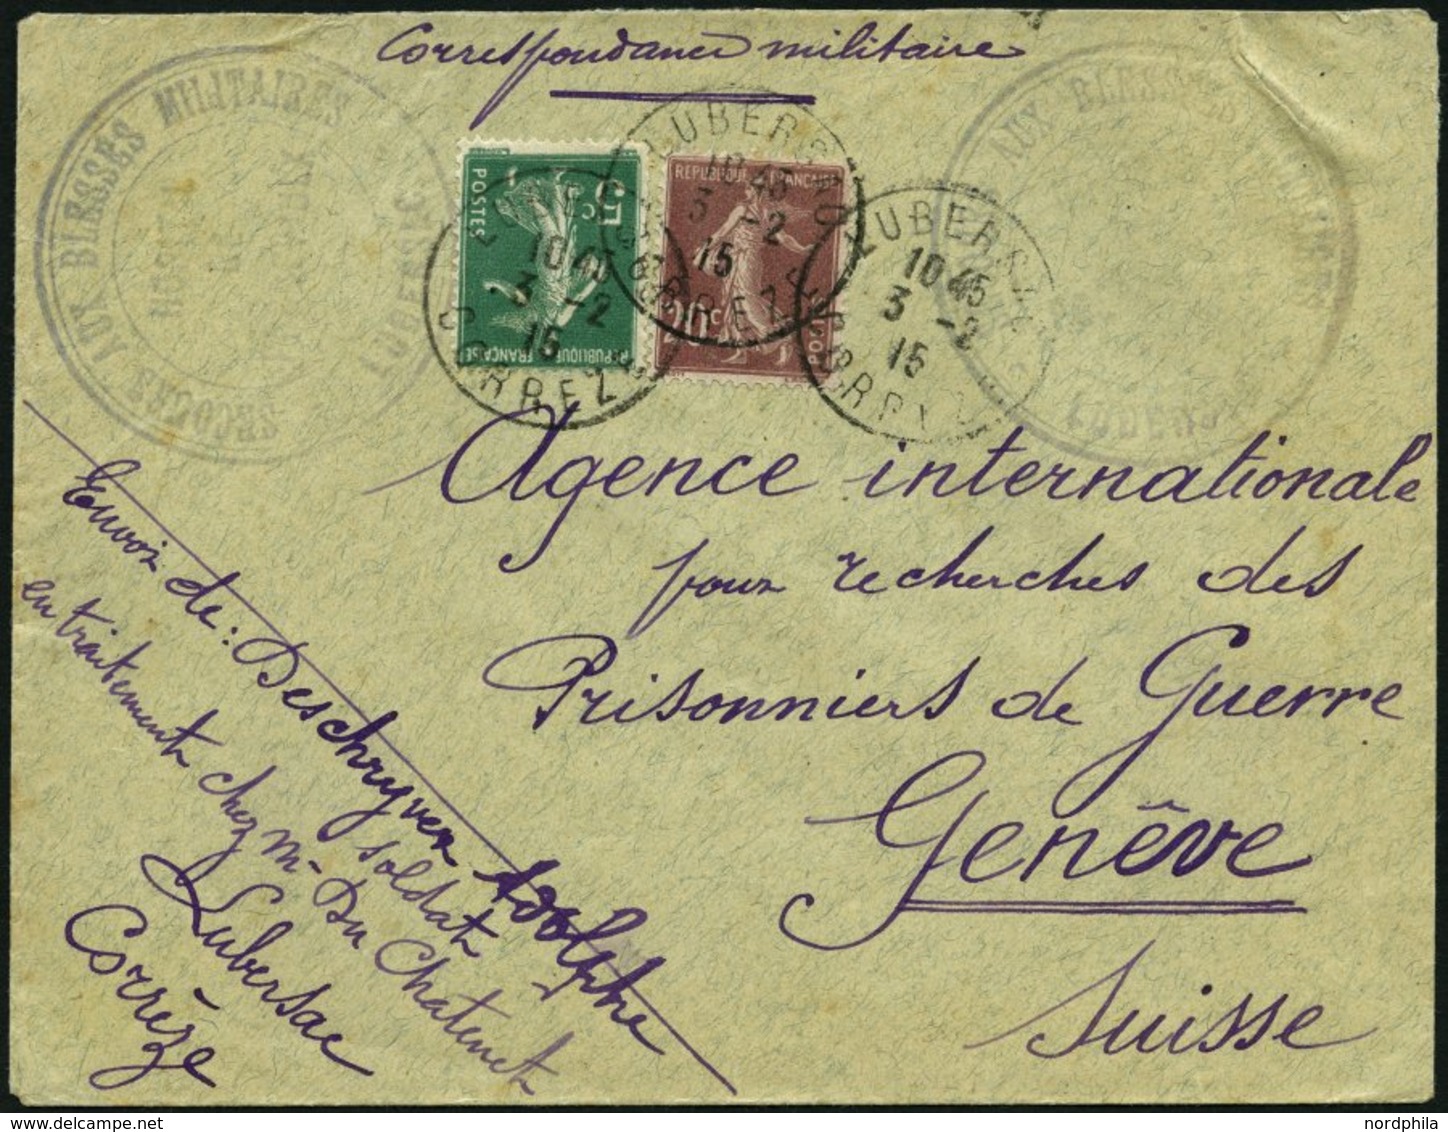 Correspondance militaire
SECOURS AUX BLESSES MILITAIRES
LUBERSAC
AUX BLESSES
LUBERSAC
5c
POSTES
REPUBLIQUE FRANÇAISE
REPUBLIQUE FRANÇAISE
20c
POSTES
LUBERSAC
10 45
3 -2
15
CORREZE
LUBERSAC
10 45
3 -2
15
CORREZE
LUBERSAC
10 45
3 -2
15
CORREZE
Agence internationale
pour recherches des
Prisonniers de Guerre
Genêve
Suisse
Envoi de: Deschryver Adolphe
soldat
en traitement chez M- Du Chatenet
Lubersac
Corrèze
nordphila